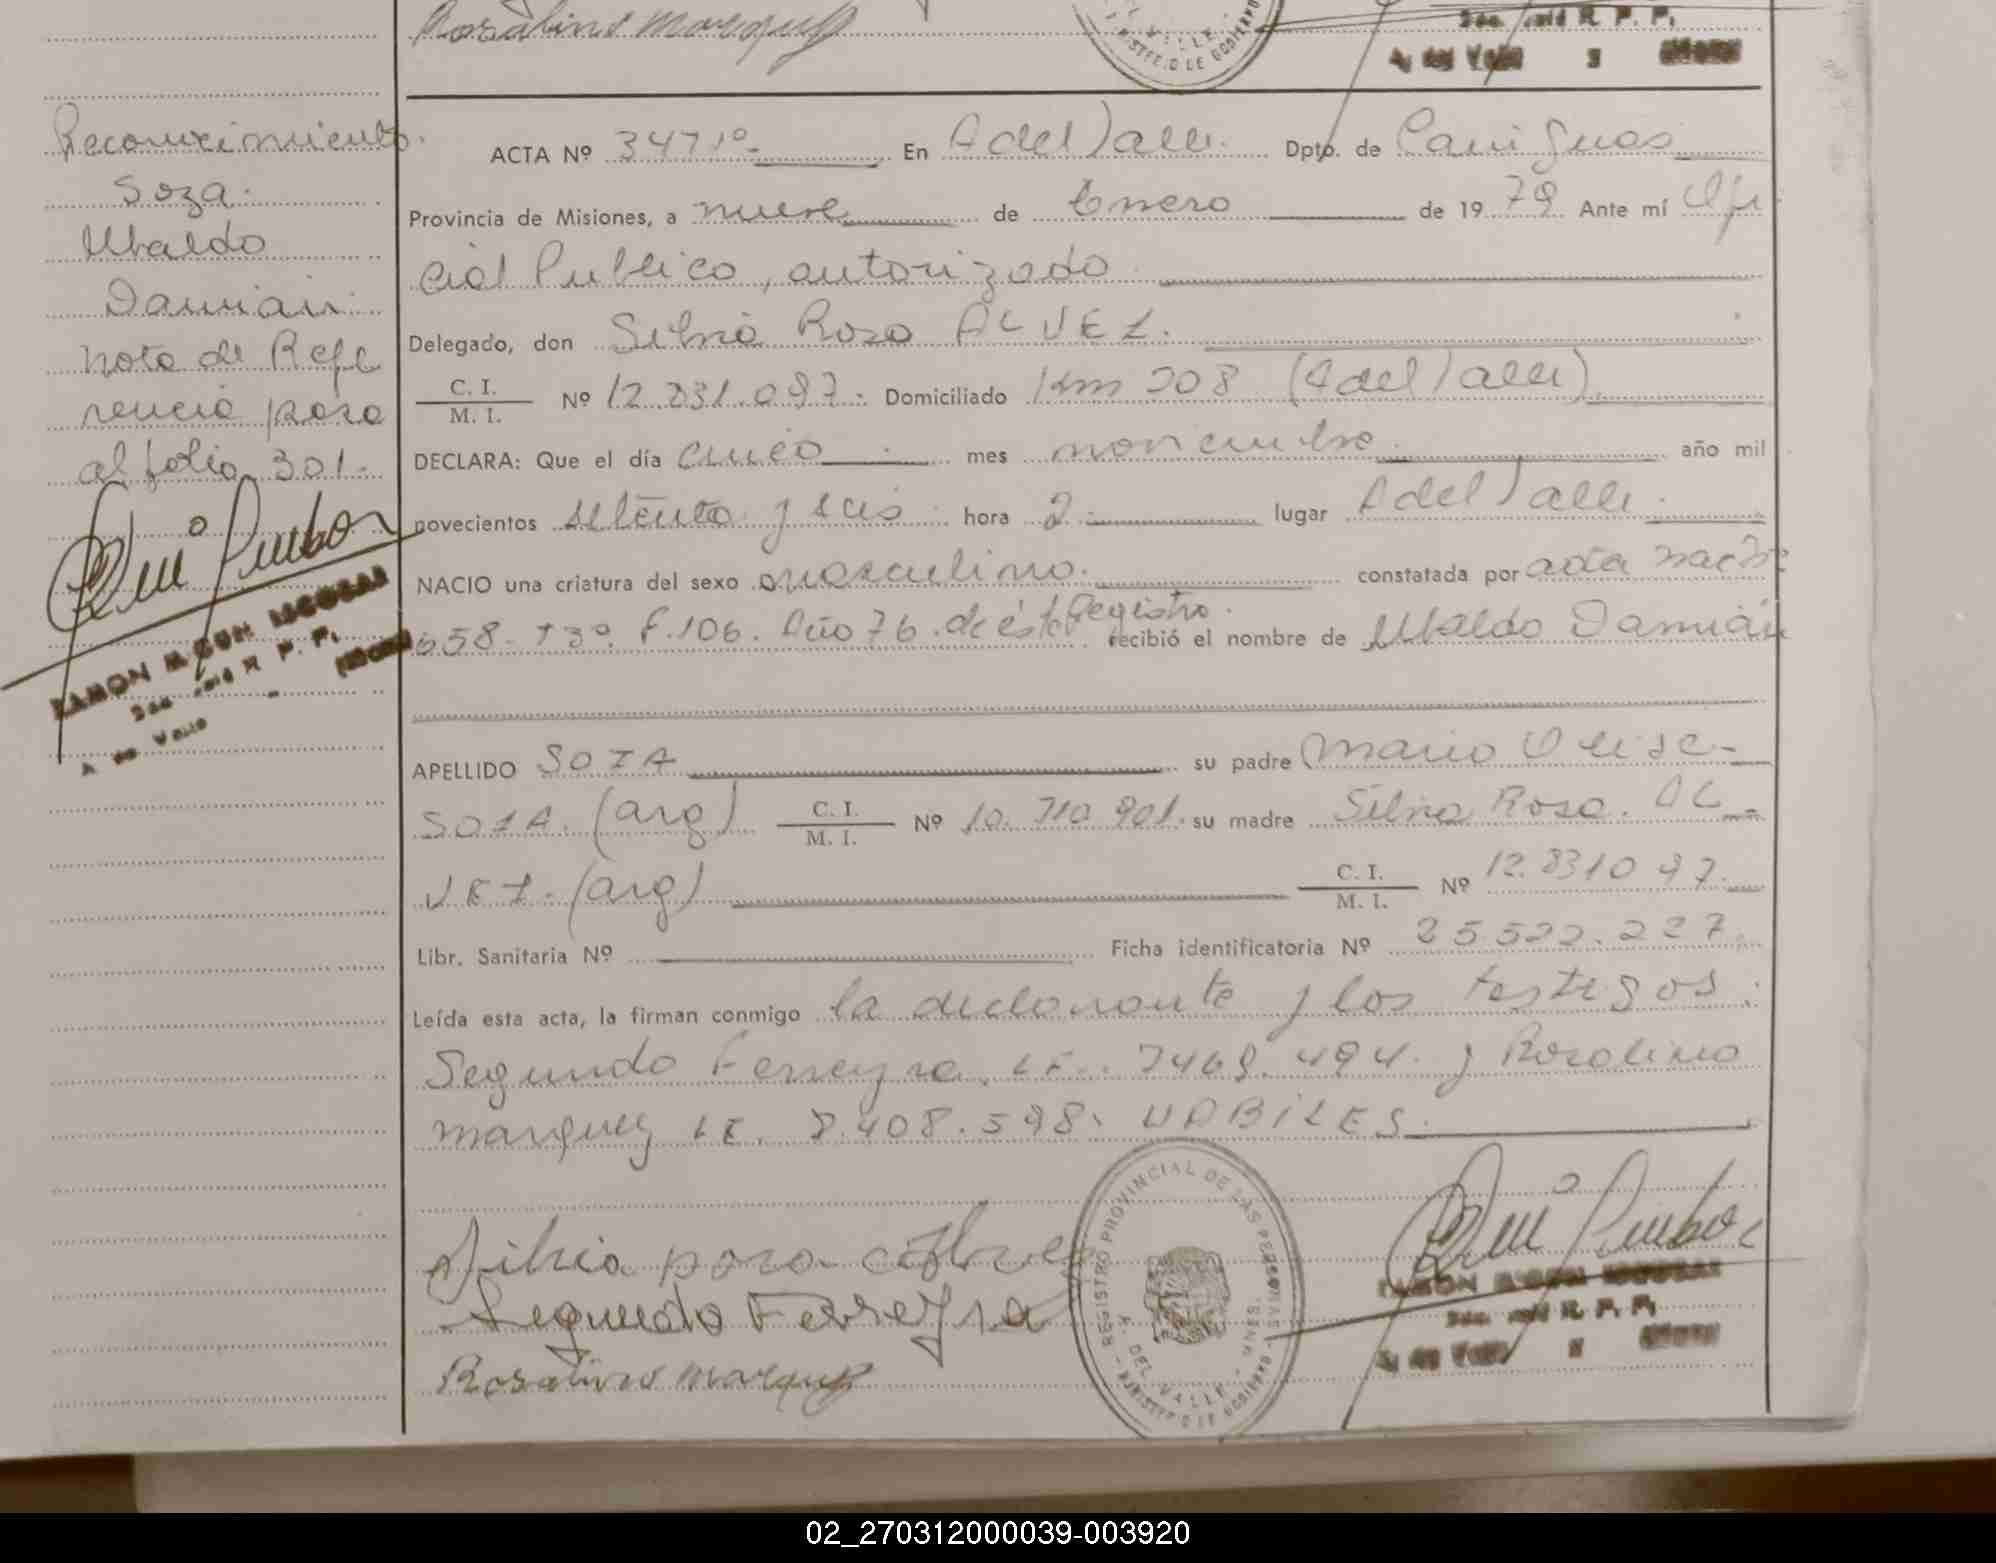 Rosalino Marquez
A. del Valle
Reconocimiento
Soza
Ubaldo
Damian
nota de Refe
rencia paso
al folio 301.-
ACTA Nº 3471º- En A del Valle. Dpto. de Cainguas
Provincia de Misiones, a nueve de Enero de 1979 Ante mí Ofi
cial Publico, autorizado
Delegado, don Silvia Rosa ALVEZ.
C. I.
M. I. Nº 12.831.097. Domiciliado Km 208 (A del Valle)
DECLARA: Que el día cinco mes noviembre año mil
novecientos setenta y seis hora 2 lugar A del Valle.
NACIO una criatura del sexo masculino. constatada por acta nac
658- Tº 3º. F. 106. Año 76. de éste Registro. recibió el nombre de Ubaldo Damián
APELLIDO SOZA su padre Mario
SOZA. (arg) C. I.
M. I. Nº 10.710.901. su madre Silvia Rosa. AL
VEZ. (arg) C. I.
M. I. Nº 12.831097.
Libr. Sanitaria Nº Ficha identificatoria Nº 25.522.227.
Leída esta acta, la firman conmigo la declarante y los testigos
Segundo Ferreyra LE. 7469.494. y Rosolino
Marquez LE. 7.408.598. HABILES.
Silvia rosa Alvez
Segundo Ferreyra
Rosalino Marquez
REGISTRO PROVINCIAL DE LAS PERSONAS
A. DEL VALLE - MNES.
MINISTERIO DE GOBIERNO
RAMON
R. P. P.
A. del Valle
02_270312000039-003920